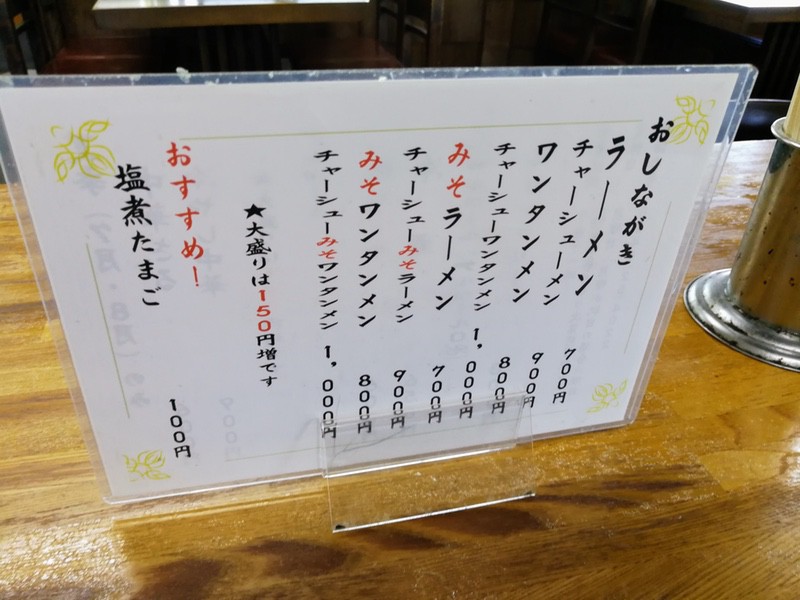 おしながき
ラーメン 700円
チャーシューメン 900円
ワンタンメン 800円
チャーシューワンタンメン 1,000円
みそラーメン 700円
チャーシューみそラーメン 900円
みそワンタンメン 800円
チャーシューみそワンタンメン 1,000円
★大盛りは150円増です
おすすめ！
塩煮たまご 100円